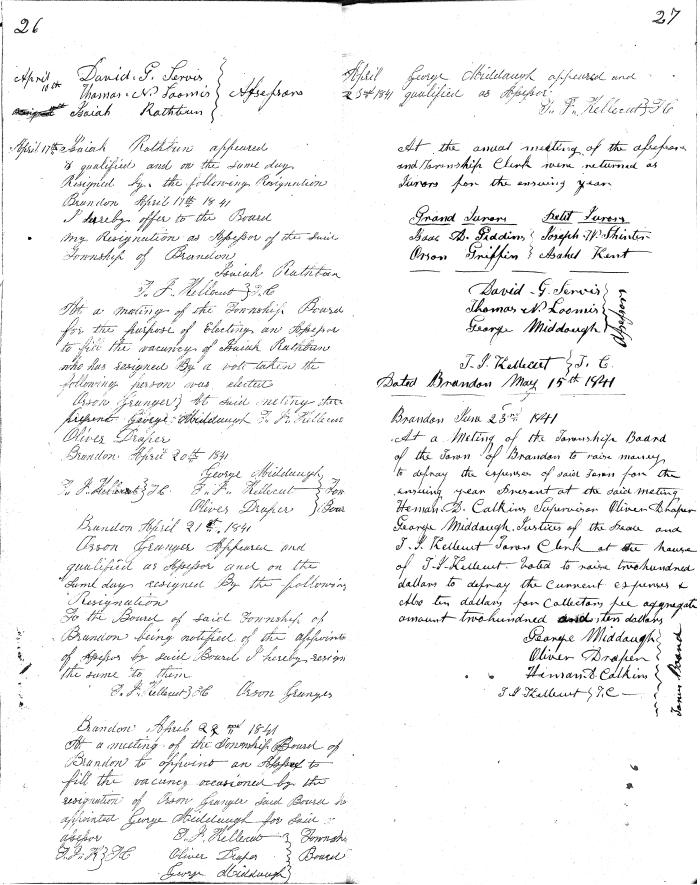 26
April 10th David. G. Servis
Thomas. N. Loomis } Assessors
Isaiah Rathbun
April 17th Isaiah Rathbun appeared
& qualified and on the same day
Resigned by the following Resignation
Brandon April 17th 1841
I hereby offer to the Board
my Resignation as Assessor of the said
Township of Brandon
Isaiah Rathbun
T. J. Kelleeut } T. C
At a meeting of the Township Board
for the purpose of Electing an Assessor
to fill the vacancy of Isaiah Rathbun
who has resigned By a vote taken the
following person was elected
Orson Granger } At said meeting
present George Middaugh T. J. Kelleeut
Oliver Draper
Brandon April 20th 1841
George Middaugh
T. J. Kelleeut } T. C. T. J. Kelleeut } Tow
Oliver Draper } Boar
Brandon April 21st, 1841
Orson Granger Appeared and
qualified as Assessor and on the
same day resigned By the following
Resignation
To the Board of said Township of
Brandon being notified of the appoint
of Assessor by said Board I hereby resign
the same to them
T. J. Kelleeut } T C Orson Granger
Brandon April 22nd 1841
At a meeting of the Township Board of
Brandon to appoint an Assessor to
fill the vacancy occasioned by the
resignation of Orson Granger said Board
appointed George Middaugh for said
assesor T. J. Kelleeut } Townshi
T. J. K } T C Oliver Draper } Board
George Middaugh
27
April George Middaugh appeared and
23rd 1841 qualified as Assessor
T. J. Kelleeut } T C
At the anual meeting of the assessors
and Township Clerk were returned as
Jurors for the ensuing year
Grand Jurors Petit Jurors
Isaac
Orson Griffin } Asahel Kent
David. G. Servis
Thomas N. Loomis } Assessors
George Middaugh
T. J. Kelleeut } T. C.
Dated Brandon May 15th 1841
Brandon June 23rd 1841
At a Meting of the Township Board
of the Town of Brandon to raise money
to defray the expenses of said Town for the
ensuing year Present at the said meting
Heman. D. Calkins Supervisor Oliver Draper
George Middaugh Justices of the Peace and
T. J. Kelleeut Town Clerk at the house
of T. J. Kelleeut. Voted to raise two hundred
dollars to defray the current expenses &
Also ten dollars for Collectors fee aggregate
amount two hundred and ten dollars
George Middaugh
Oliver Draper } Town Board
Heman D Calkins
T J Kelleeut } T. C